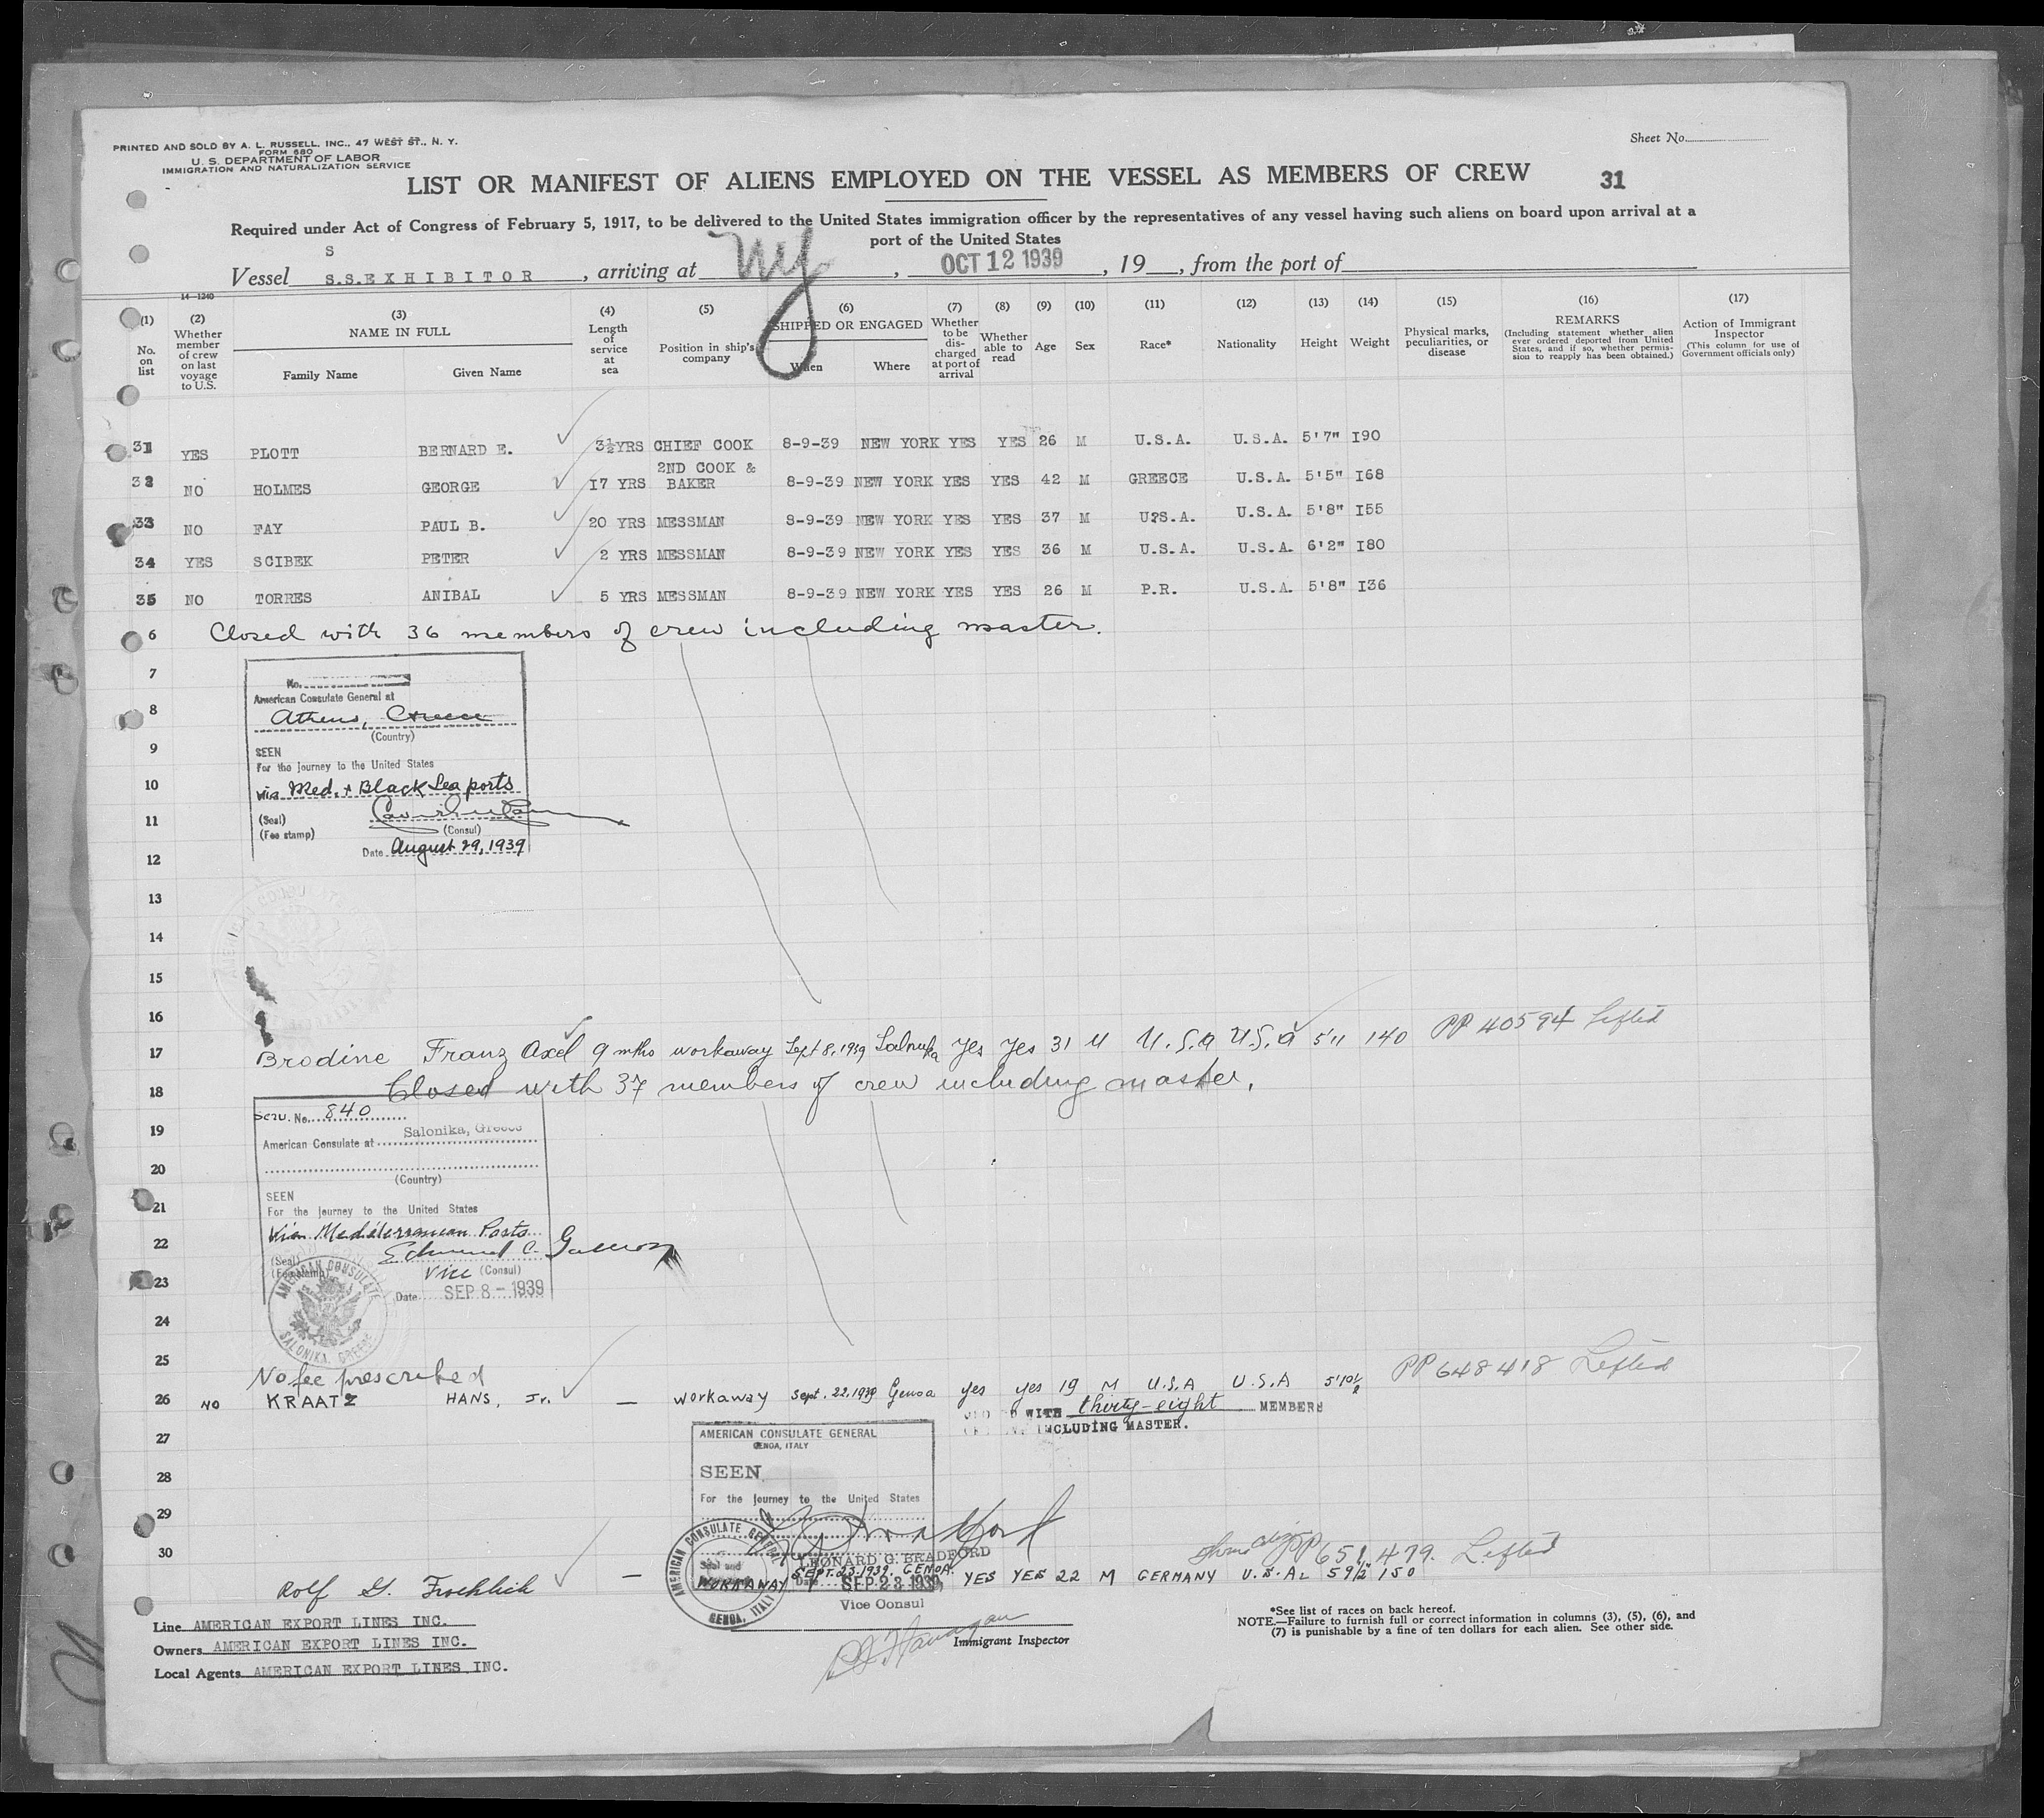 PRINTED AND SOLD BY A. L. RUSSELL, INC., 47 WEST ST., N. Y.
FORM 680
U. S. DEPARTMENT OF LABOR
IMMIGRATION AND NATURALIZATION SERVICE
Sheet No.
LIST OR MANIFEST OF ALIENS EMPLOYED ON THE VESSEL AS MEMBERS OF CREW 31
Required under Act of Congress of February 5, 1917, to be delivered to the United States immigration officer by the representatives of any vessel having such aliens on board upon arrival at a
port of the United States
S
Vessel S.S.EXHIBITOR, arriving at NY, OCT 12 1939, 19, from the port of
14-1240
(1) No. on list
(2) Whether member of crew on last voyage to U.S.
(3) NAME IN FULL
Family Name Given Name
(4) Length of service at sea
(5) Position in ship's company
(6) SHIPPED OR ENGAGED
When Where
(7) Whether to be discharged at port of arrival
(8) Whether able to read
(9) Age
(10) Sex
(11) Race*
(12) Nationality
(13) Height
(14) Weight
(15) Physical marks, peculiarities, or disease
(16) REMARKS
(Including statement whether alien ever ordered deported from United States, and if so, whether permission to reapply has been obtained.)
(17) Action of Immigrant Inspector
(This column for use of Government officials only)
31 YES PLOTT BERNARD E. 3½YRS CHIEF COOK 8-9-39 NEW YORK YES YES 26 M U.S.A. U.S.A. 5'7" I90
32 NO HOLMES GEORGE I7 YRS 2ND COOK & BAKER 8-9-39 NEW YORK YES YES 42 M GREECE U.S.A. 5'5" I68
33 NO FAY PAUL B. 20 YRS MESSMAN 8-9-39 NEW YORK YES YES 37 M U?S.A. U.S.A. 5'8" I55
34 YES SCIBEK PETER 2 YRS MESSMAN 8-9-39 NEW YORK YES YES 36 M U.S.A. U.S.A. 6'2" I80
35 NO TORRES ANIBAL 5 YRS MESSMAN 8-9-39 NEW YORK YES YES 26 M P.R. U.S.A. 5'8" I36
6 Closed with 36 members of crew including master.
7
No.
American Consulate General at
8
Athens, Greece
(Country)
9
SEEN
For the journey to the United States
10
via Med. + Black Sea ports
11
(Seal)
(Fee stamp) (Consul)
12
Date August 29, 1939
13
14
15
16
PP 40594 Lifted
17 Brodine Franz Axel 9 mths workaway Sept 8, 1939 Salnuka yes yes 31 M U.S.A U.S.A 5'11 140
18 Closed with 37 members of crew including master.
Serv. No. 840
19
American Consulate at Salonika, Greece
20
(Country)
21
SEEN
For the journey to the United States
22
Via Mediterranean Ports
Edmund C.
(Seal)
(Fee stamp) Vice (Consul)
23
Date SEP 8 - 1939
AMERICAN CONSULATE
SALONIKA, GREECE
24
25
No fee prescribed
PP 648418 Lifted
26 NO KRAATZ HANS, Jr. — workaway Sept. 22, 1939 Genoa yes yes 19 M U.S.A U.S.A 5'10½
WITH thirty-eight MEMBERS
INCLUDING MASTER.
27
AMERICAN CONSULATE GENERAL
GENOA, ITALY
28
SEEN
For the journey to the United States
29
30
AMERICAN CONSULATE GENERAL
GENOA, ITALY
LEONARD G. BRADFORD
PP 651,479. Lifted
Rolf G. Froehlich — WORKAWAY SEPT. 23. 1939. GENOA. YES YES 22 M GERMANY U.S.A. 5 9½" 150
Date SEP 23 1939
Vice Consul
Line AMERICAN EXPORT LINES INC.
Owners AMERICAN EXPORT LINES INC.
Local Agents AMERICAN EXPORT LINES INC.
Immigrant Inspector
*See list of races on back hereof.
NOTE.—Failure to furnish full or correct information in columns (3), (5), (6), and
(7) is punishable by a fine of ten dollars for each alien. See other side.